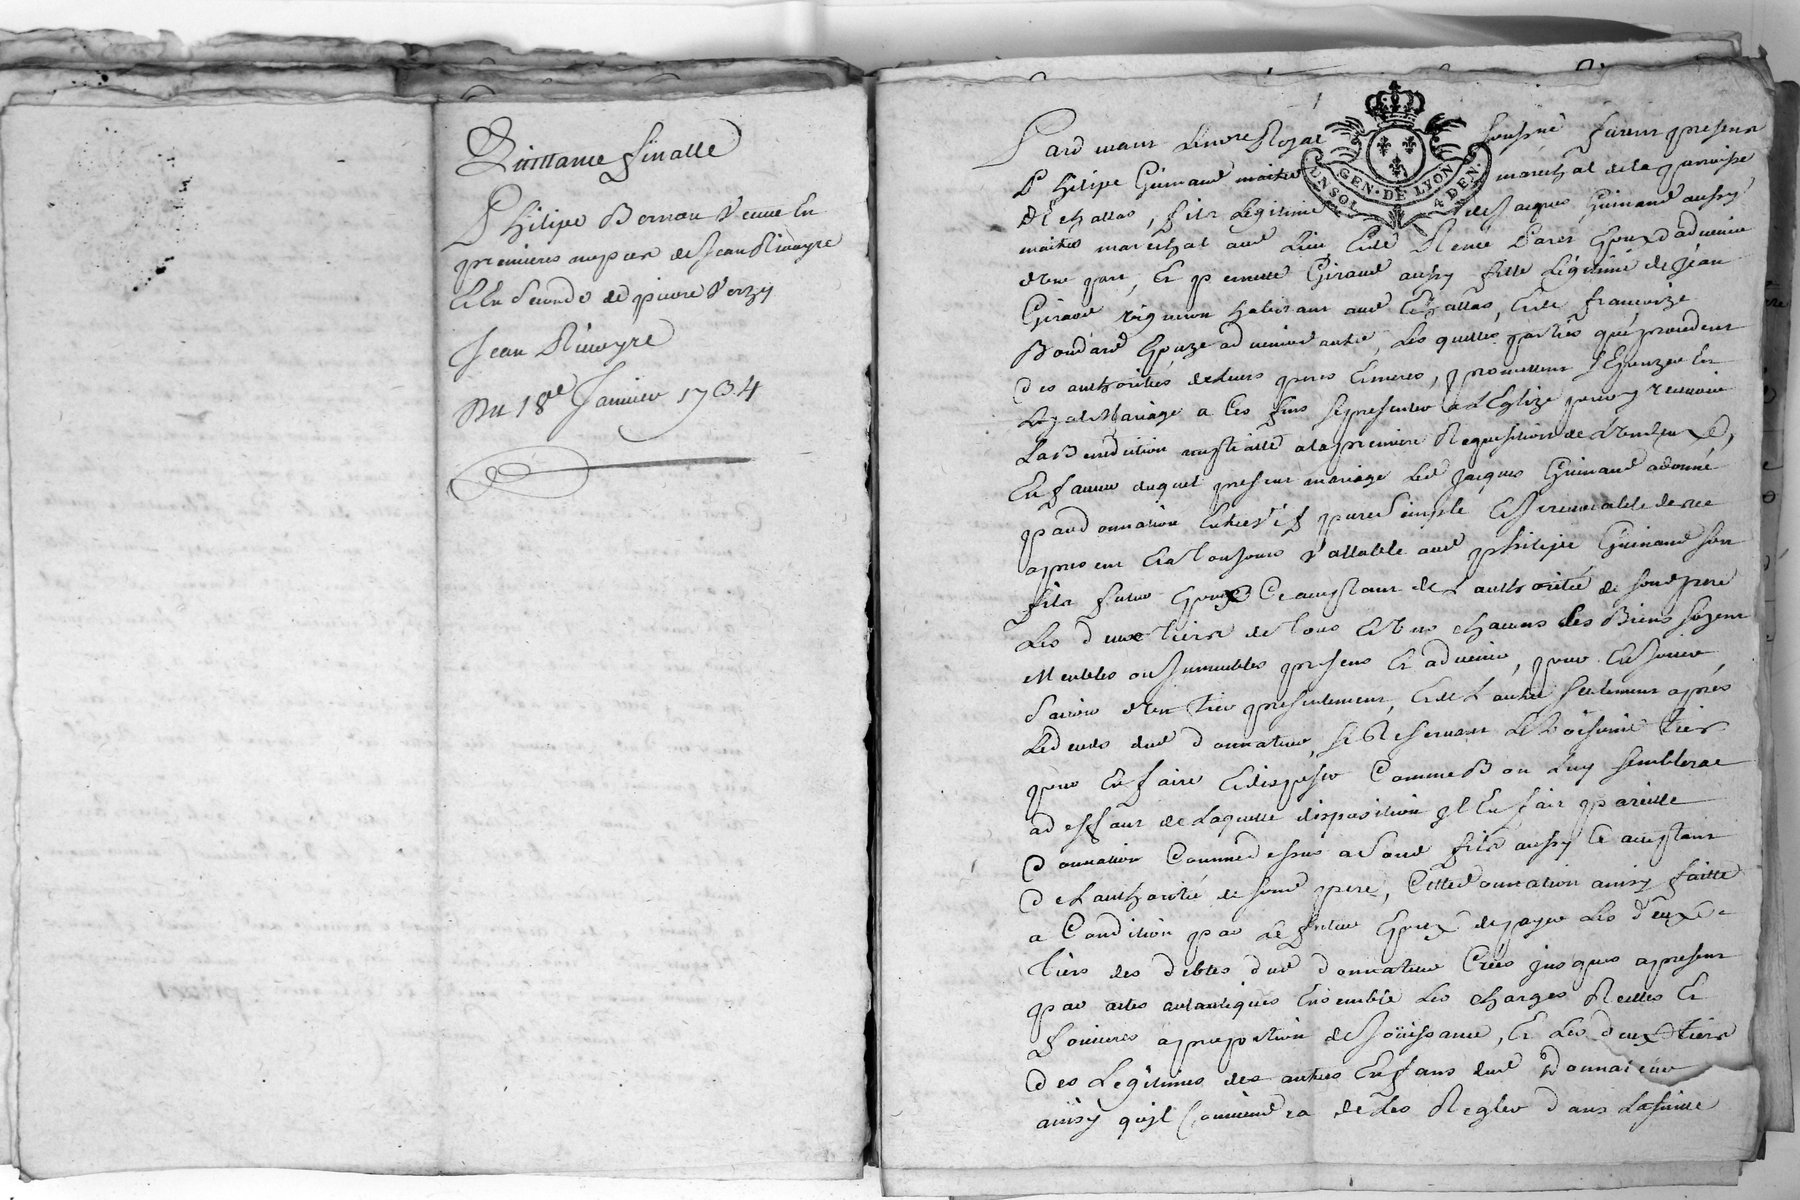 Quittance finalle
Philipe Bernau Veuve En
premieres nopces de Jean Rivoyre
Et En Secondes de pierre Verzy
Jean Rivoyre
Du 18e Janvier 1734
GEN. DE LYON
UN SOL 4 DEN.
Pardevant Lenore Royal soussigné furent presents
Philipe Guinand maitre marechal de la parroisse
d'Echallas, fils Legitime de Jacques Guinand aussy
maitre marechal aud Lieu Et de Époux advenir
d'une part, Et pernette Giraud aussy fille Légitime de Jean
Giraud vigneron habitant aud Echallas, Et de francoize
Boudard Epouze advenir autre, Lesquelles parties que procedent
des authorités de leurs peres Et meres, promettent s'Epouzer En
Loyal Mariage a Ces fins se presenter a L'Eglize pour y recevoir
La Benediction nuptialle a la premiere Requisition de L'un d'eux,
En faveur duquel present mariage Led Jacques Guinand a donné
par donnation Entrevifs pure Simple Et Irrevocable des
apresent Et a Toujours Vallable aud philipe Guinand son
fils futur Epoux Ce acceptant de L'authorité de sond pere
Les deux tiers de Tous Et uns chacuns Ses Biens soyent
Meubles ou Immeubles presens Et advenir, pour En Jouir
Scavoir d'un Tier presentement, Et de L'autre seulement après
Le deceds dud donnateur, se Reservant Le Troisieme Tier
pour En faire Et disposer Comme Bon Luy semblera
a deffaut de Laquelle disposition Il En fait pareille
Donnation Comme dessus a Sond fils aussy Ce acceptant
De L'authorité de sond pere, Cette donnation ainsy faitte
a Condition par Le futur Epoux de payer Les deux
Tiers des debtes dud donnateur Crées jusques apresent
par actes autantiques Ensemble Les charges Reelles Et
foncieres a proportion de Jouissance, Et Les deux Tiers
des Legitimes des autres Enfans dud Donnateur
ainsy qu'il Conviendra de Les Regler dans La suitte